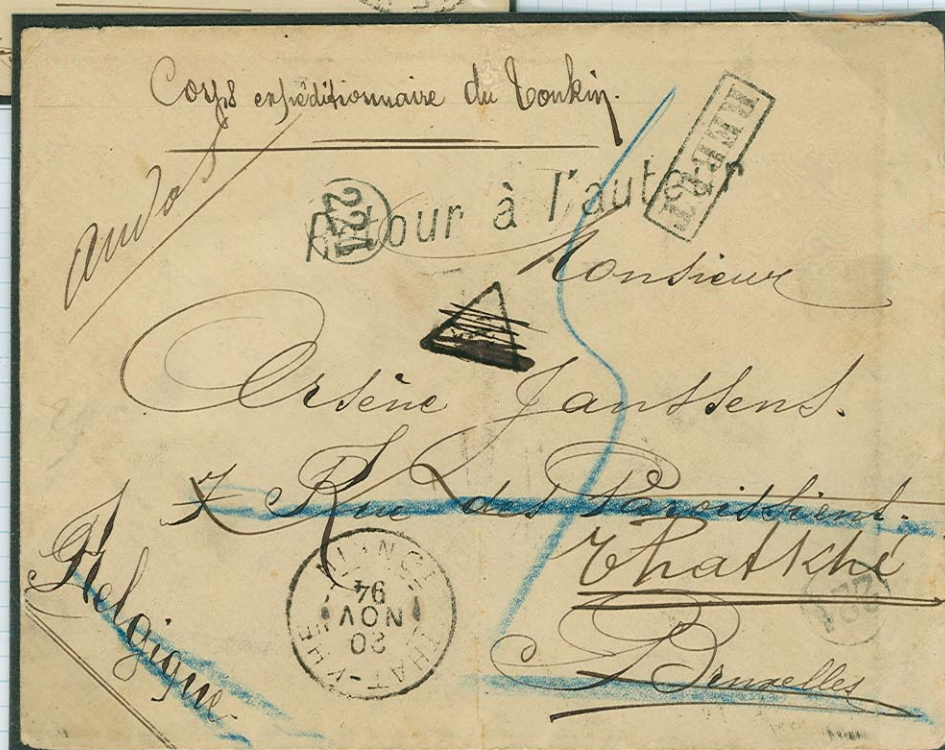 Corps expéditionnaire du Tonkin.
REBUT
Retour à l'auteur
221
Monsieur
Arsène Janssens.
7 Rue des Paroissiens.
Thatkhé
Bruxelles
Belgique.
THAT-KHÉ
20
NOV
94
221